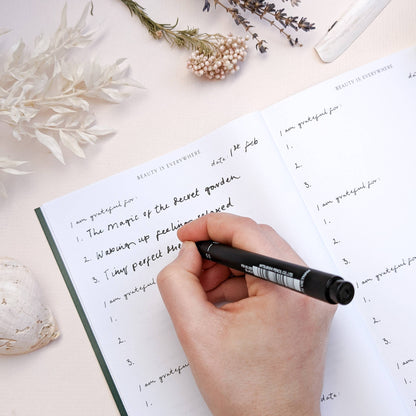 BEAUTY IS EVERYWHERE
date: 1st Feb
I am grateful for:
1. The magic of the secret garden
2. Waking up feeling relaxed
3. Tiny perfect
I am grateful for:
1.
2.
3.
I am grateful
1.
BEAUTY IS EVERYWHERE
I am grateful for:
1.
2.
3.
I am grateful for:
1.
2.
3.
I am grateful
1.
2.
3.
I am
date:
MITSUBISHI PENCIL CO., LTD.